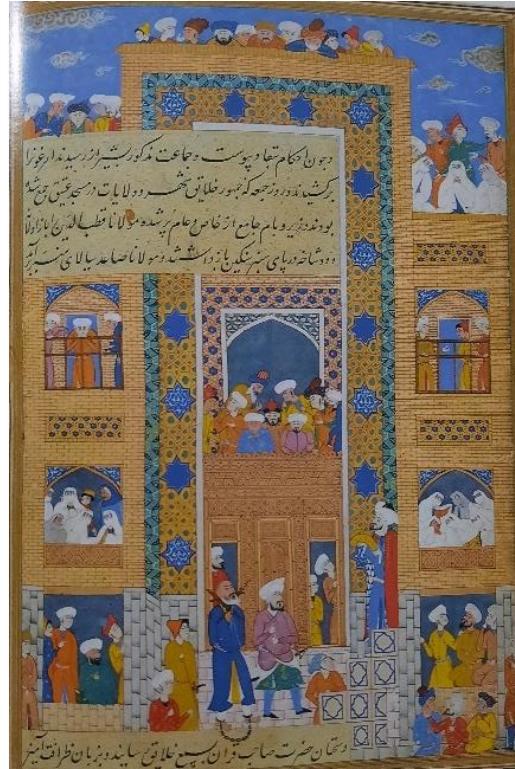 و چون احکام بنفاد پیوست و جماعت مذکور بشیراز رسیدند ارغونرا
برکشیدند و روز جمعه که جمهور خلایق شهر و ولایات در مسجد عتیق جمع شده
بودند و زیر و بام جامع از خاص و عام پر شده مولانا قطب الدین را با زاولانه
و دوشاخه در پای منبر سنگین بازداشتند و مولانا صاعد ببالای منبر برآمد
و سخنان حضرت صاحب قران بسمع خلایق رسانید و بزبان ظرافت آمیز